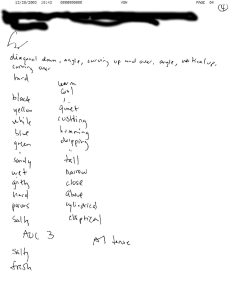 12/20/2002 15:42 VON PAGE 04
4
diagonal down, angle, curving up and over, angle, vertical up,
curving over
hard warm
cool
black
yellow quiet
white
blue humming
green dripping
sandy tall
wet narrow
gritty close
hard above
porous cylindrical
salty elliptical
AOL 3
salty
fresh